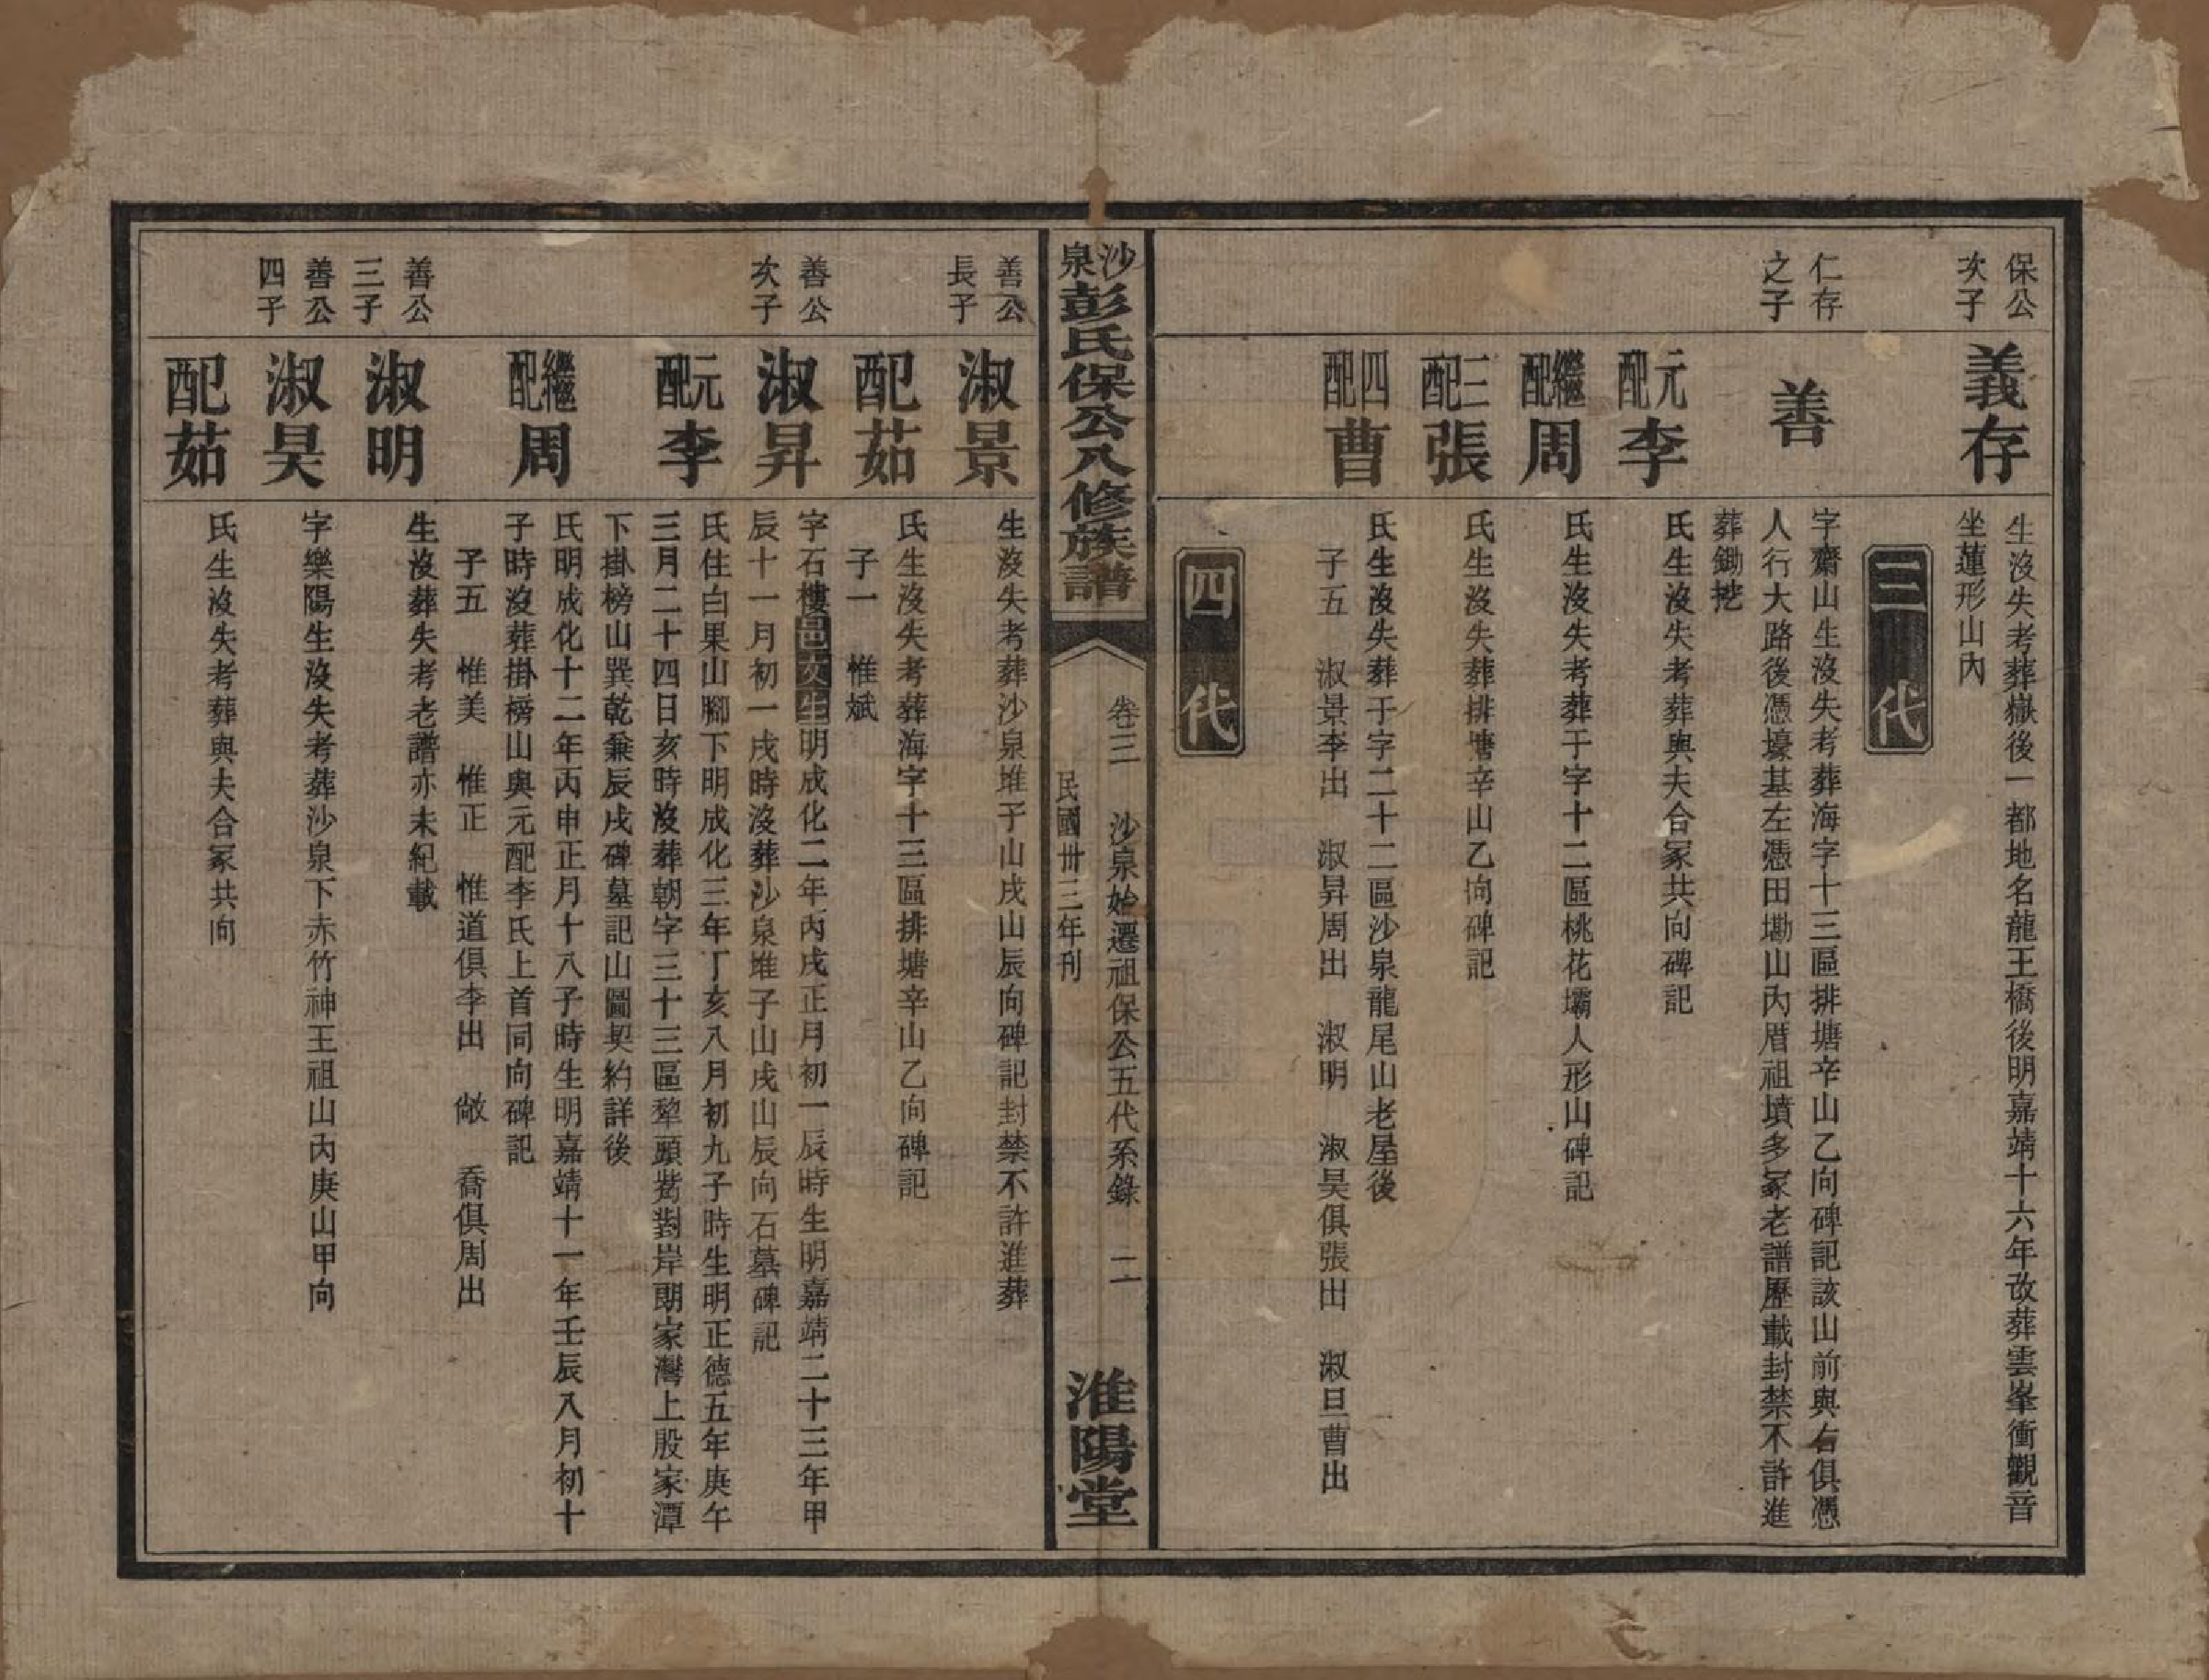 保公
次子
義存
生沒失考葬嶽後一都地名龍王橋後明嘉靖十六年改葬雲峯衝觀音
坐蓮形山內
三代
仁存
之子
善
字齋山生沒失考葬海字十三區排塘辛山乙向碑記該山前與右俱憑
人行大路後憑壕基左憑田墈山內厝祖墳多冢老譜歷載封禁不許進
葬鋤挖
元配李
氏生沒失考葬與夫合冢共向碑記
繼配周
氏生沒失考葬于字十二區桃花壩人形山碑記
三配張
氏生沒失葬排塘辛山乙向碑記
四配曹
氏生沒失葬于字二十二區沙泉龍尾山老屋後
子五　淑景李出　淑昇周出　淑明　淑昊俱張出　淑旦曹出
四代
沙泉彭氏保公八修族譜
卷三　沙泉始遷祖保公五代系錄　二
民國卅三年刊
淮陽堂
善公
長子
淑景
生沒失考葬沙泉堆子山戌山辰向碑記封禁不許進葬
配茹
氏生沒失考葬海字十三區排塘辛山乙向碑記
子一　惟斌
善公
次子
淑昇
字石樓邑庠生明成化二年丙戌正月初一辰時生明嘉靖二十三年甲
辰十一月初一戌時沒葬沙泉堆子山戌山辰向石墓碑記
元配李
氏住白果山腳下明成化三年丁亥八月初九子時生明正德五年庚午
三月二十四日亥時沒葬朝字三十三區犂頭嘴對岸郎家灣上殷家潭
下掛榜山巽乾兼辰戌碑墓記山圖契約詳後
繼配周
氏明成化十二年丙申正月十八子時生明嘉靖十一年壬辰八月初十
子時沒葬掛榜山與元配李氏上首同向碑記
子五　惟美　惟正　惟道俱李出　敞　喬俱周出
善公
三子
淑明
生沒葬失考老譜亦未紀載
善公
四子
淑昊
字樂陽生沒失考葬沙泉下赤竹神王祖山內庚山甲向
配茹
氏生沒失考葬與夫合冢共向